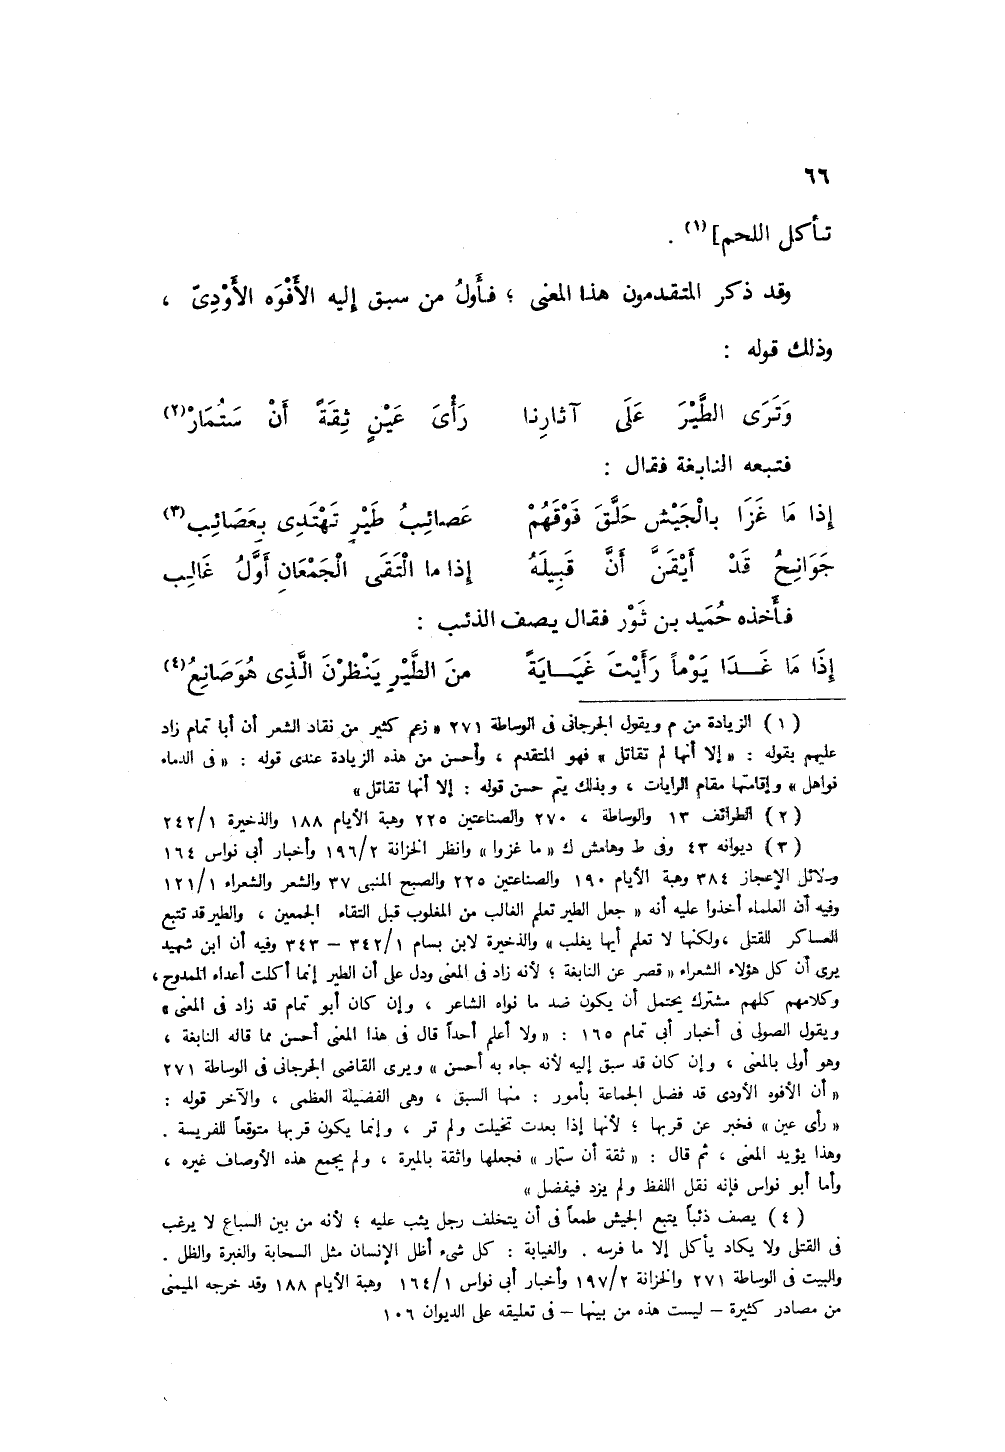 ٦٦
تأكل اللحم](١) .
وقد ذكر المتقدمون هذا المعنى ؛ فأولُ من سبق إليه الأَفْوَه الأَوْدِىّ ،
وذلك قوله :
وَتَرَى الطَّيْرَ عَلَى آثارِنا رَأْىَ عَيْنٍ ثِقَةً أَنْ سَتُمَارْ(٢)
فتبعه النابغة فقال :
إذا مَا غَزَا بالْجَيْش حَلَّقَ فَوْقَهُمْ عَصائِبُ طَيْرٍ تَهْتَدِى بِعَصَائِب(٣)
جَوَانِحُ قَدْ أَيْقَنَّ أَنَّ قَبِيلَهُ إذا ما الْتَقَى الْجَمْعَانِ أَوَّلُ غَالِب
فأَخذه حُمَيد بن ثَوْر فقال يصف الذئب :
إذَا مَا غَـدَا يَوْماً رَأَيْتَ غَيَـايَةً منَ الطَّيْرِ يَنْظرْنَ الَّذِى هُوَ صَانِعُ(٤)
(١) الزيادة من م ويقول الجرجانى فى الوساطة ٢٧١ « زعم كثير من نقاد الشعر أن أبا تمام زاد
عليهم بقوله : « إلا أنها لم تقاتل » فهو المتقدم ، وأحسن من هذه الزيادة عندى قوله : « فى الدماء
نواهل » وإقامتها مقام الرايات ، وبذلك يتم حسن قوله : إلا أنها تقاتل »
(٢) الطرائف ١٣ والوساطة ، ٢٧٠ والصناعتين ٢٢٥ وهبة الأيام ١٨٨ والذخيرة ٢٤٢/١
(٣) ديوانه ٤٣ وفى ط وهامش ك « ما غزوا » وانظر الخزانة ١٩٦/٢ وأخبار أبى نواس ١٦٤
ودلائل الإعجاز ٣٨٤ وهبة الأيام ١٩٠ والصناعتين ٢٢٥ والصبح المنبى ٣٧ والشعر والشعراء ١٢١/١
وفيه أن العلماء أخذوا عليه أنه « جعل الطير تعلم الغالب من المغلوب قبل التقاء الجمعين ، والطير قد تتبع
العساكر للقتلى ، ولكنها لا تعلم أيها يغلب » والذخيرة لابن بسام ٣٤٢/١ – ٣٤٣ وفيه أن ابن شهيد
يرى أن كل هؤلاء الشعراء « قصر عن النابغة ؛ لأنه زاد فى المعنى ودل على أن الطير إنما أكلت أعداء الممدوح ،
وكلامهم كلهم مشترك يحتمل أن يكون ضد ما نواه الشاعر ، وإن كان أبو تمام قد زاد فى المعنى »
ويقول الصولى فى أخبار أبى تمام ١٦٥ : « ولا أعلم أحداً قال فى هذا المعنى أحسن مما قاله النابغة ،
وهو أولى بالمعنى ، وإن كان قد سبق إليه لأنه جاء به أحسن » ويرى القاضى الجرجانى فى الوساطة ٢٧١
« أن الأفوه الأودى قد فضل الجماعة بأمور : منها السبق ، وهى الفضيلة العظمى ، والآخر قوله :
« رأى عين » فخبر عن قربها ؛ لأنها إذا بعدت تخيلت ولم تر ، وإنما يكون قربها متوقعاً للفريسة .
وهذا يؤيد المعنى ، ثم قال : « ثقة أن ستمار » فجعلها واثقة بالميرة ، ولم يجمع هذه الأوصاف غيره ،
وأما أبو نواس فإنه نقل اللفظ ولم يزد فيفضل »
(٤) يصف ذئباً يتبع الجيش طمعاً فى أن يتخلف رجل يثب عليه ؛ لأنه من بين السباع لا يرغب
فى القتلى ولا يكاد يأكل إلا ما فرسه . والغياية : كل شىء أظل الإنسان مثل السحابة والغبرة والظل .
والبيت فى الوساطة ٢٧١ والخزانة ١٩٧/٢ وأخبار أبى نواس ١٦٤/١ وهبة الأيام ١٨٨ وقد خرجه الميمنى
من مصادر كثيرة – ليست هذه من بينها – فى تعليقه على الديوان ١٠٦